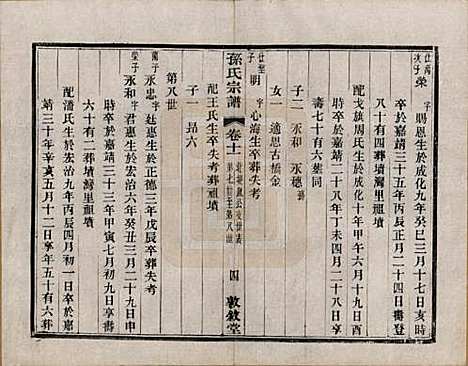 仕高次子 榮 字賜恩生於成化九年癸巳三月十七日亥時
卒於嘉靖三十五年丙辰四月二十三日壽登
八十有四葬墳灣里祖墳
配戈旗周氏生於成化十年甲午六月十九日酉
時卒於嘉靖二十八年丁未四月二十八日享
壽七十有六葬同
子二 永和 永穗
女一 適思古橋金
仕聖子 明 字心海生卒葬失考
配王氏生卒失考葬祖墳
子一 昂六
孫氏宗譜 卷十一 第七世至第八世 四 敦敘堂
第八世
蘭子 永忠 字廷惠生於正德三年戊辰卒葬失考
榮子 永和 字君惠生於宏治六年癸丑三月二十九日申
時卒於嘉靖三十三年甲寅七月初九日享壽
六十有二葬墳灣里祖墳
配潘氏生於宏治九年丙辰四月初一日卒於嘉
靖三十年辛亥五月十二日享年五十有六葬